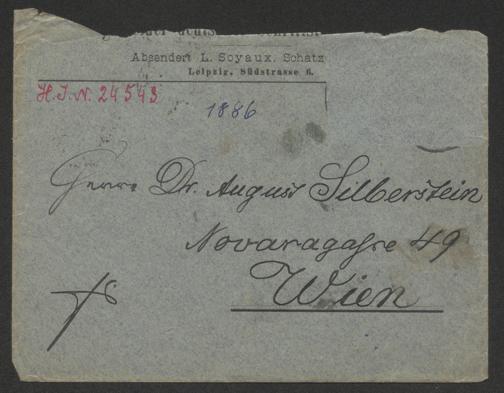 deutscher Schriftst
Absender: L. Soyaux. Schatz
Leipzig, Südstrasse 6.
H. I. N. 24543
1886
Herrn Dr. August Silberstein
Novaragasse 49
Wien